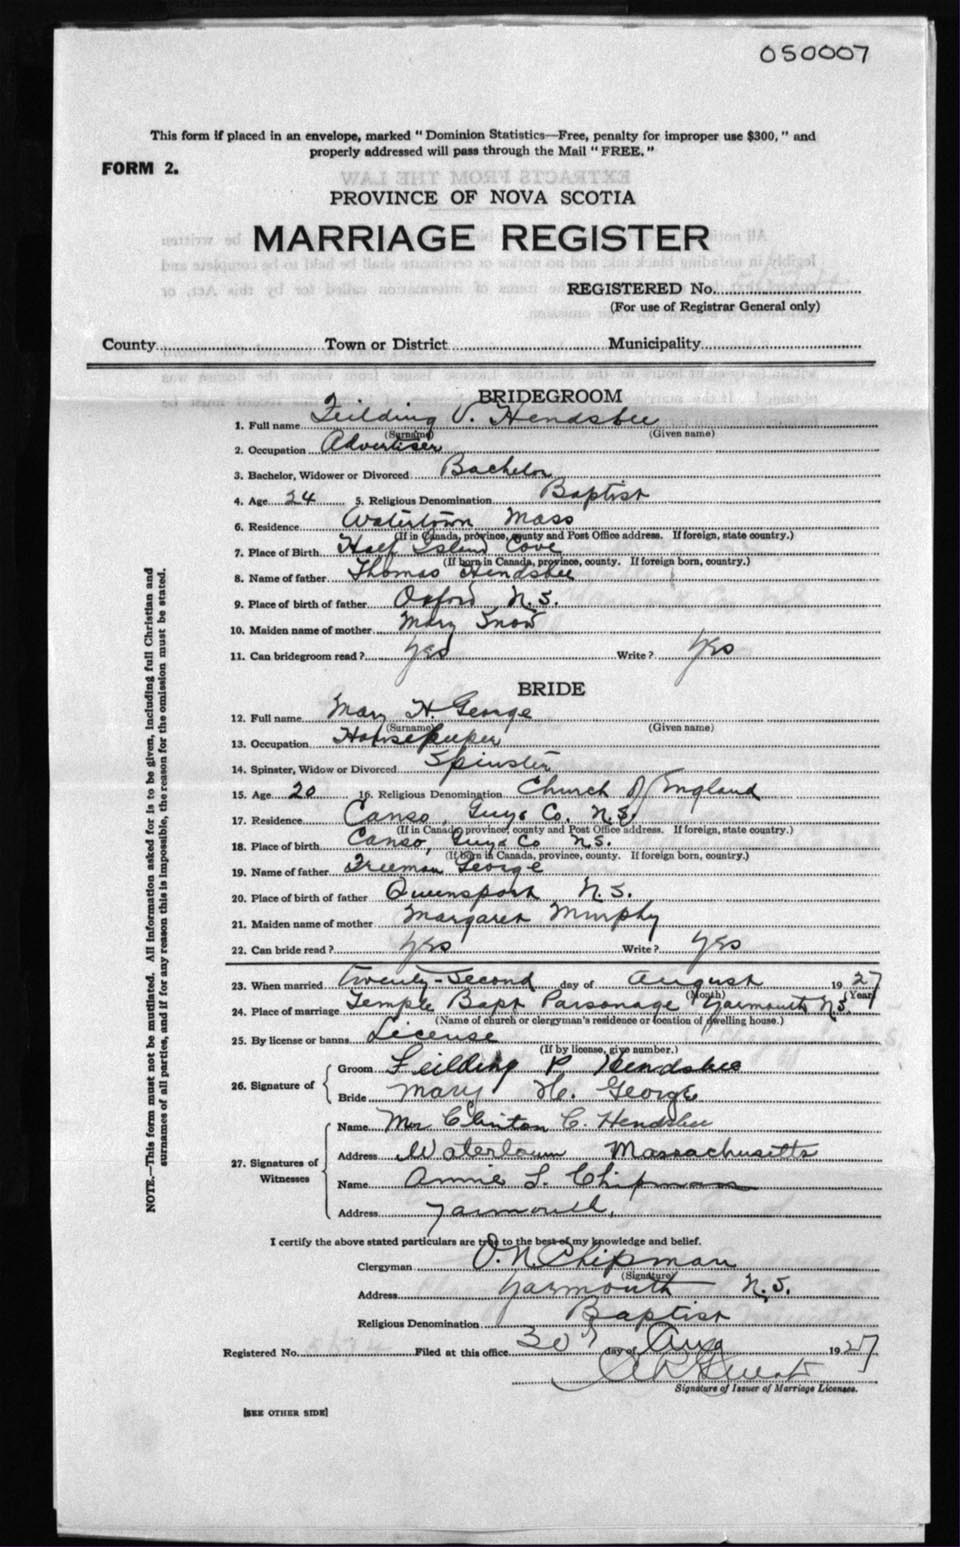 050007
This form if placed in an envelope, marked "Dominion Statistics—Free, penalty for improper use $300," and
properly addressed will pass through the Mail "FREE."
FORM 2.
EXTRACTS FROM THE LAW
PROVINCE OF NOVA SCOTIA
MARRIAGE REGISTER
REGISTERED No.
(For use of Registrar General only)
County Town or District Municipality
BRIDEGROOM
1. Full name Feilding V. Hendsbee
(Surname) (Given name)
2. Occupation Advertiser
3. Bachelor, Widower or Divorced Bachelor
4. Age 24 5. Religious Denomination Baptist
6. Residence Watertown Mass
(If in Canada, province, county and Post Office address. If foreign, state country.)
7. Place of Birth Half Island Cove
(If born in Canada, province, county. If foreign born, country.)
8. Name of father Thomas Hendsbee
9. Place of birth of father Oxford N.S.
10. Maiden name of mother Mary Snow
11. Can bridegroom read? Yes Write? Yes
BRIDE
12. Full name Mary H. George
(Surname) (Given name)
13. Occupation Housekeeper
14. Spinster, Widow or Divorced Spinster
15. Age 20 16. Religious Denomination Church of England
17. Residence Canso, Guys Co. N.S.
(If in Canada, province, county and Post Office address. If foreign, state country.)
18. Place of birth Canso, Guys Co N.S.
(If born in Canada, province, county. If foreign born, country.)
19. Name of father Freeman George
20. Place of birth of father Queensport N.S.
21. Maiden name of mother Margaret Murphy
22. Can bride read? Yes Write? Yes
23. When married twenty-second day of August 1927
(Month) (Year)
24. Place of marriage Temple Bapt Parsonage Yarmouth N.S.
(Name of church or clergyman's residence or location of dwelling house.)
25. By license or banns License
(If by license, give number.)
26. Signature of Groom Feilding P Hendsbee
Bride Mary H. George
27. Signatures of Witnesses Name Mrs Clinton C. Hendsbee
Address Watertown Massachusetts
Name Annie L. Chipman
Address Yarmouth,
I certify the above stated particulars are true to the best of my knowledge and belief.
Clergyman O.N. Chipman
(Signature)
Address Yarmouth N.S.
Religious Denomination Baptist
Registered No. Filed at this office 30 day of Aug 1927
Signature of Issuer of Marriage Licenses.
[SEE OTHER SIDE]
NOTE.—This form must not be mutilated. All information asked for is to be given, including full Christian and
surnames of all parties, and if for any reason this is impossible, the reason for the omission must be stated.